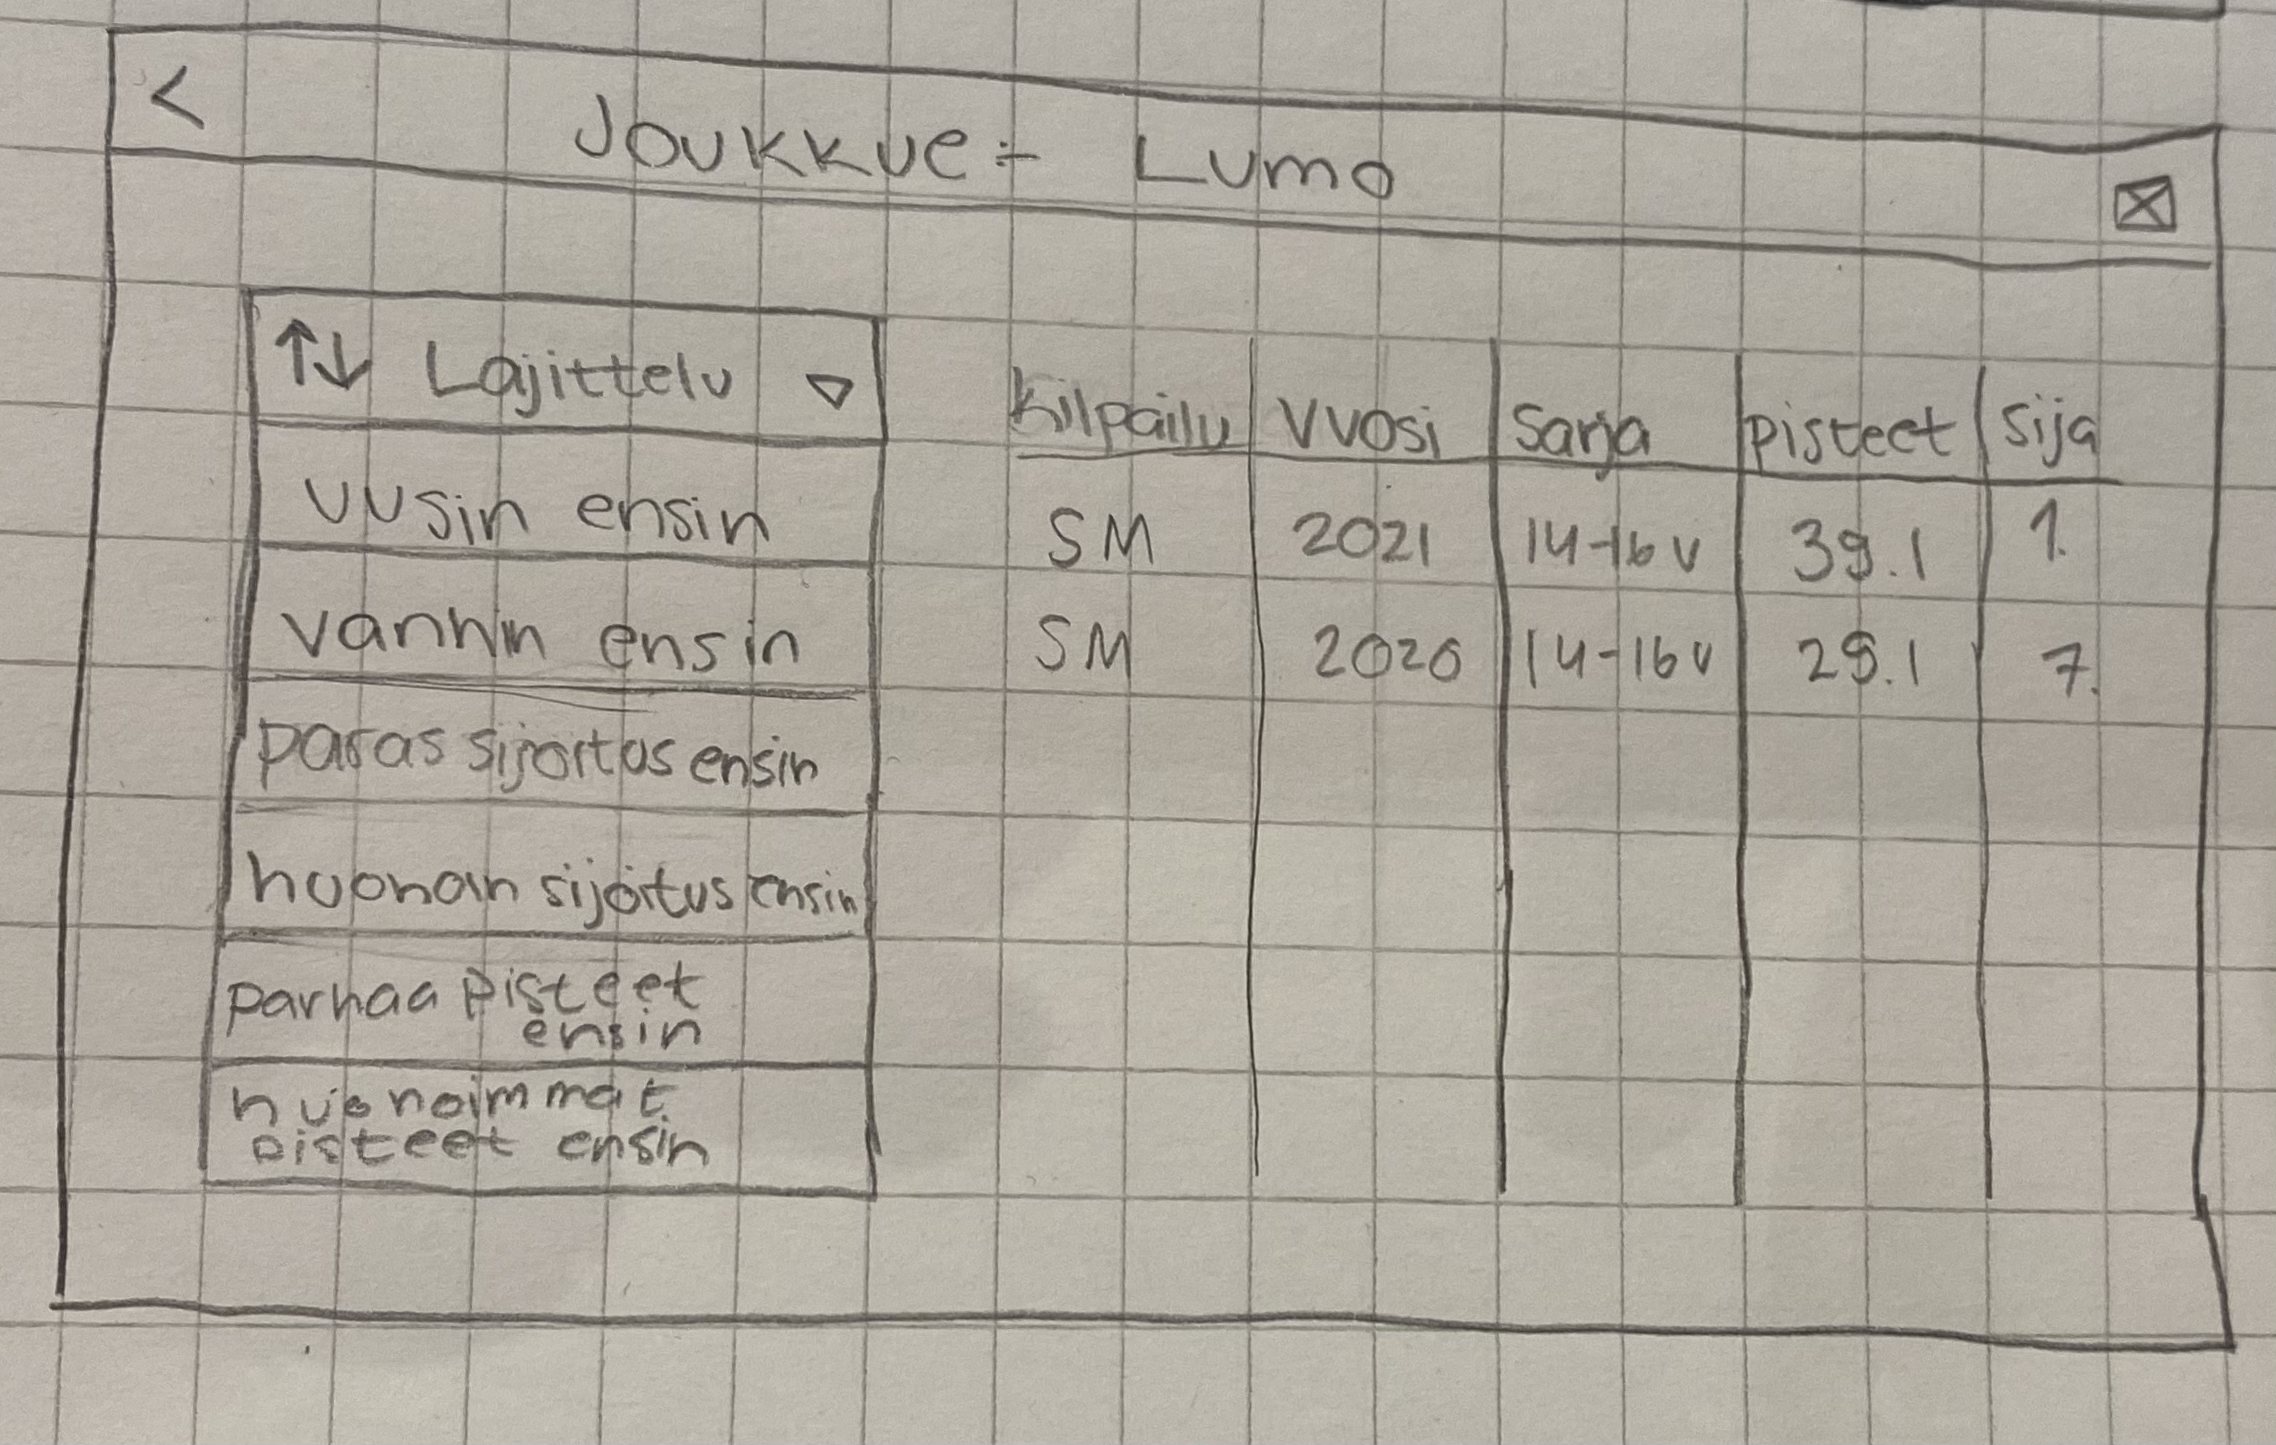 <
Joukkue:- Lumo
↑↓ Lajittelu
uusin ensin
vanhin ensin
paras sijoitus ensin
huonoin sijoitus ensin
parhaa pisteet
ensin
huonoimmat
pisteet ensin
kilpailu vuosi sarja pisteet sija
SM 2021 14-16 v 39.1 1.
SM 2020 14-16 v 29.1 7.